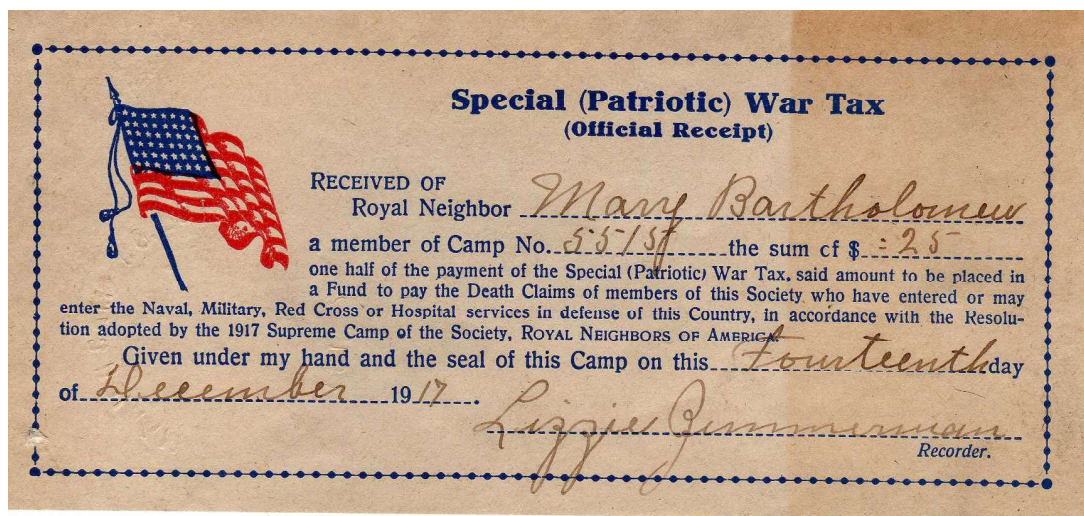 Special (Patriotic) War Tax
(Official Receipt)
RECEIVED OF
Royal Neighbor Mary Bartholomew
a member of Camp No. the sum cf $ .25
one half of the payment of the Special (Patriotic) War Tax, said amount to be placed in
a Fund to pay the Death Claims of members of this Society who have entered or may
enter the Naval, Military, Red Cross or Hospital services in defense of this Country, in accordance with the Resolu-
tion adopted by the 1917 Supreme Camp of the Society, ROYAL NEIGHBORS OF AMERICA.
Given under my hand and the seal of this Camp on this Fourteenth day
of December 1917.
Lizzie Zimmerman
Recorder.